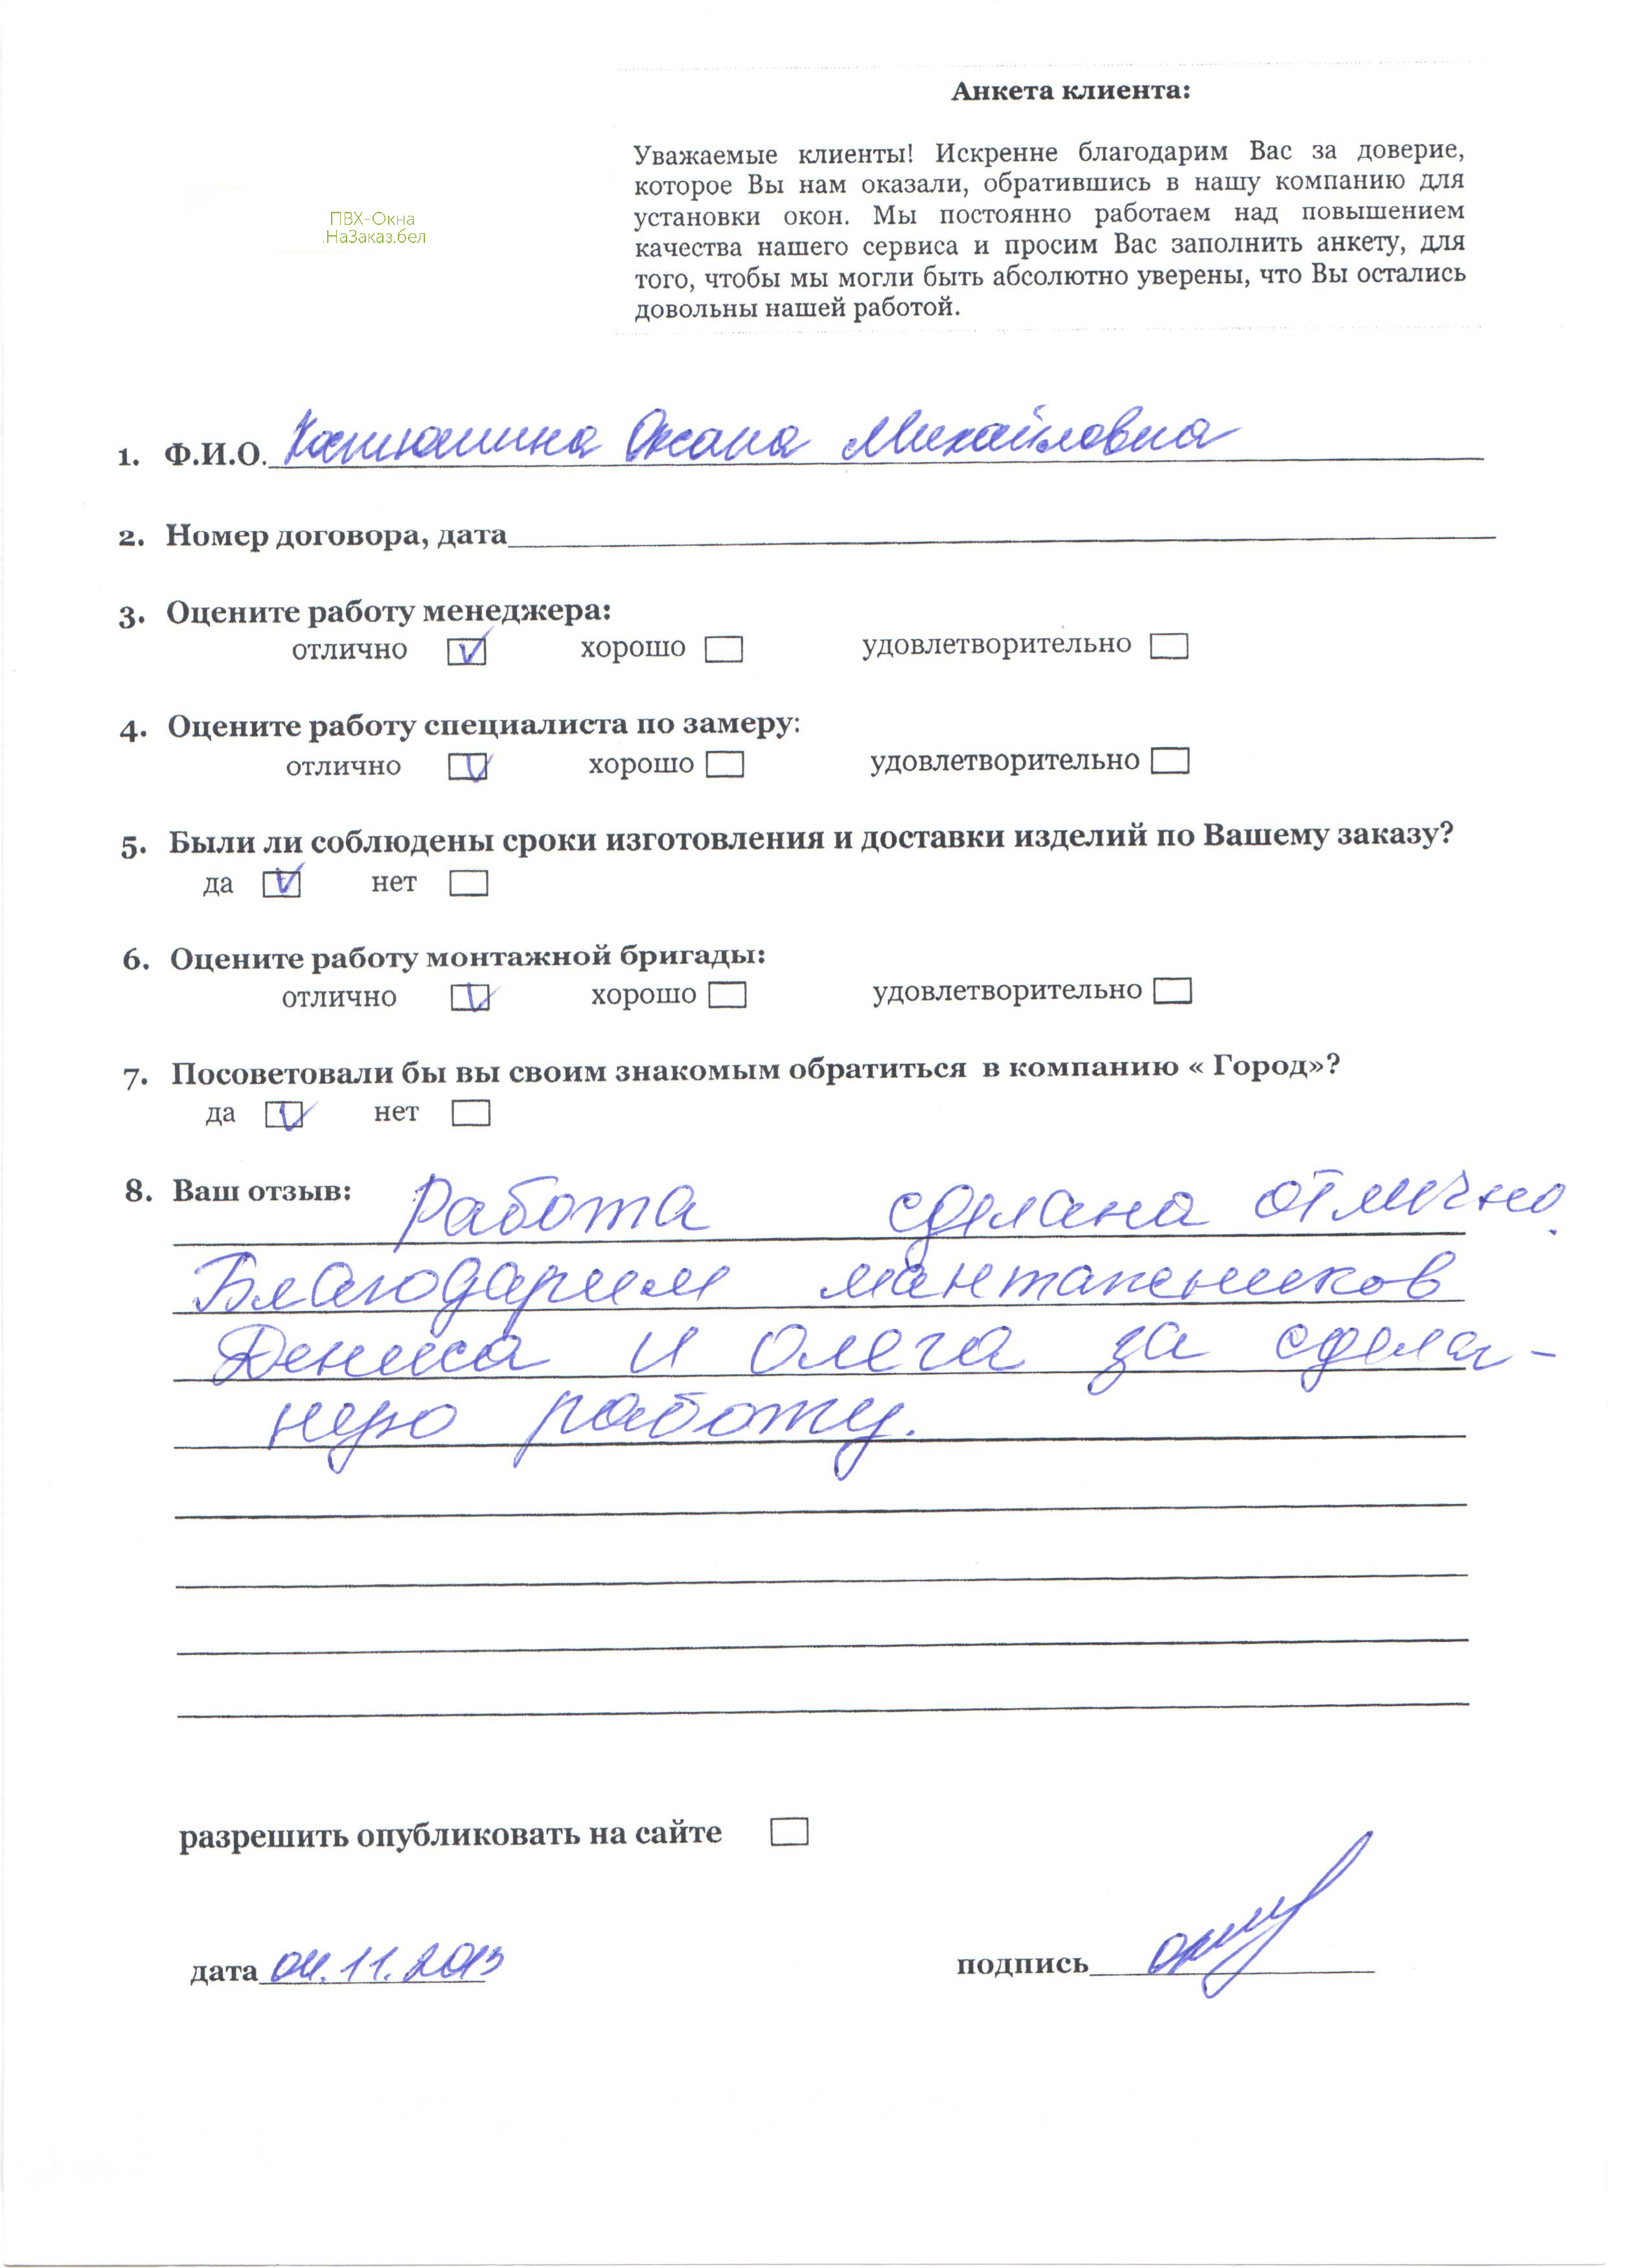 Анкета клиента:
Уважаемые клиенты! Искренне благодарим Вас за доверие,
которое Вы нам оказали, обратившись в нашу компанию для
установки окон. Мы постоянно работаем над повышением
качества нашего сервиса и просим Вас заполнить анкету, для
того, чтобы мы могли быть абсолютно уверены, что Вы остались
довольны нашей работой.
ПВХ-Окна
.НаЗаказ.бел
1. Ф.И.О. Оксана Михайловна
2. Номер договора, дата
3. Оцените работу менеджера:
отлично хорошо удовлетворительно
4. Оцените работу специалиста по замеру:
отлично хорошо удовлетворительно
5. Были ли соблюдены сроки изготовления и доставки изделий по Вашему заказу?
да нет
6. Оцените работу монтажной бригады:
отлично хорошо удовлетворительно
7. Посоветовали бы вы своим знакомым обратиться в компанию « Город»?
да нет
8. Ваш отзыв: Работа сделана отлично.
Благодарим мантажников
Дениса и Олега за сдела-
ную работу.
разрешить опубликовать на сайте
дата 04.11.2013 подпись